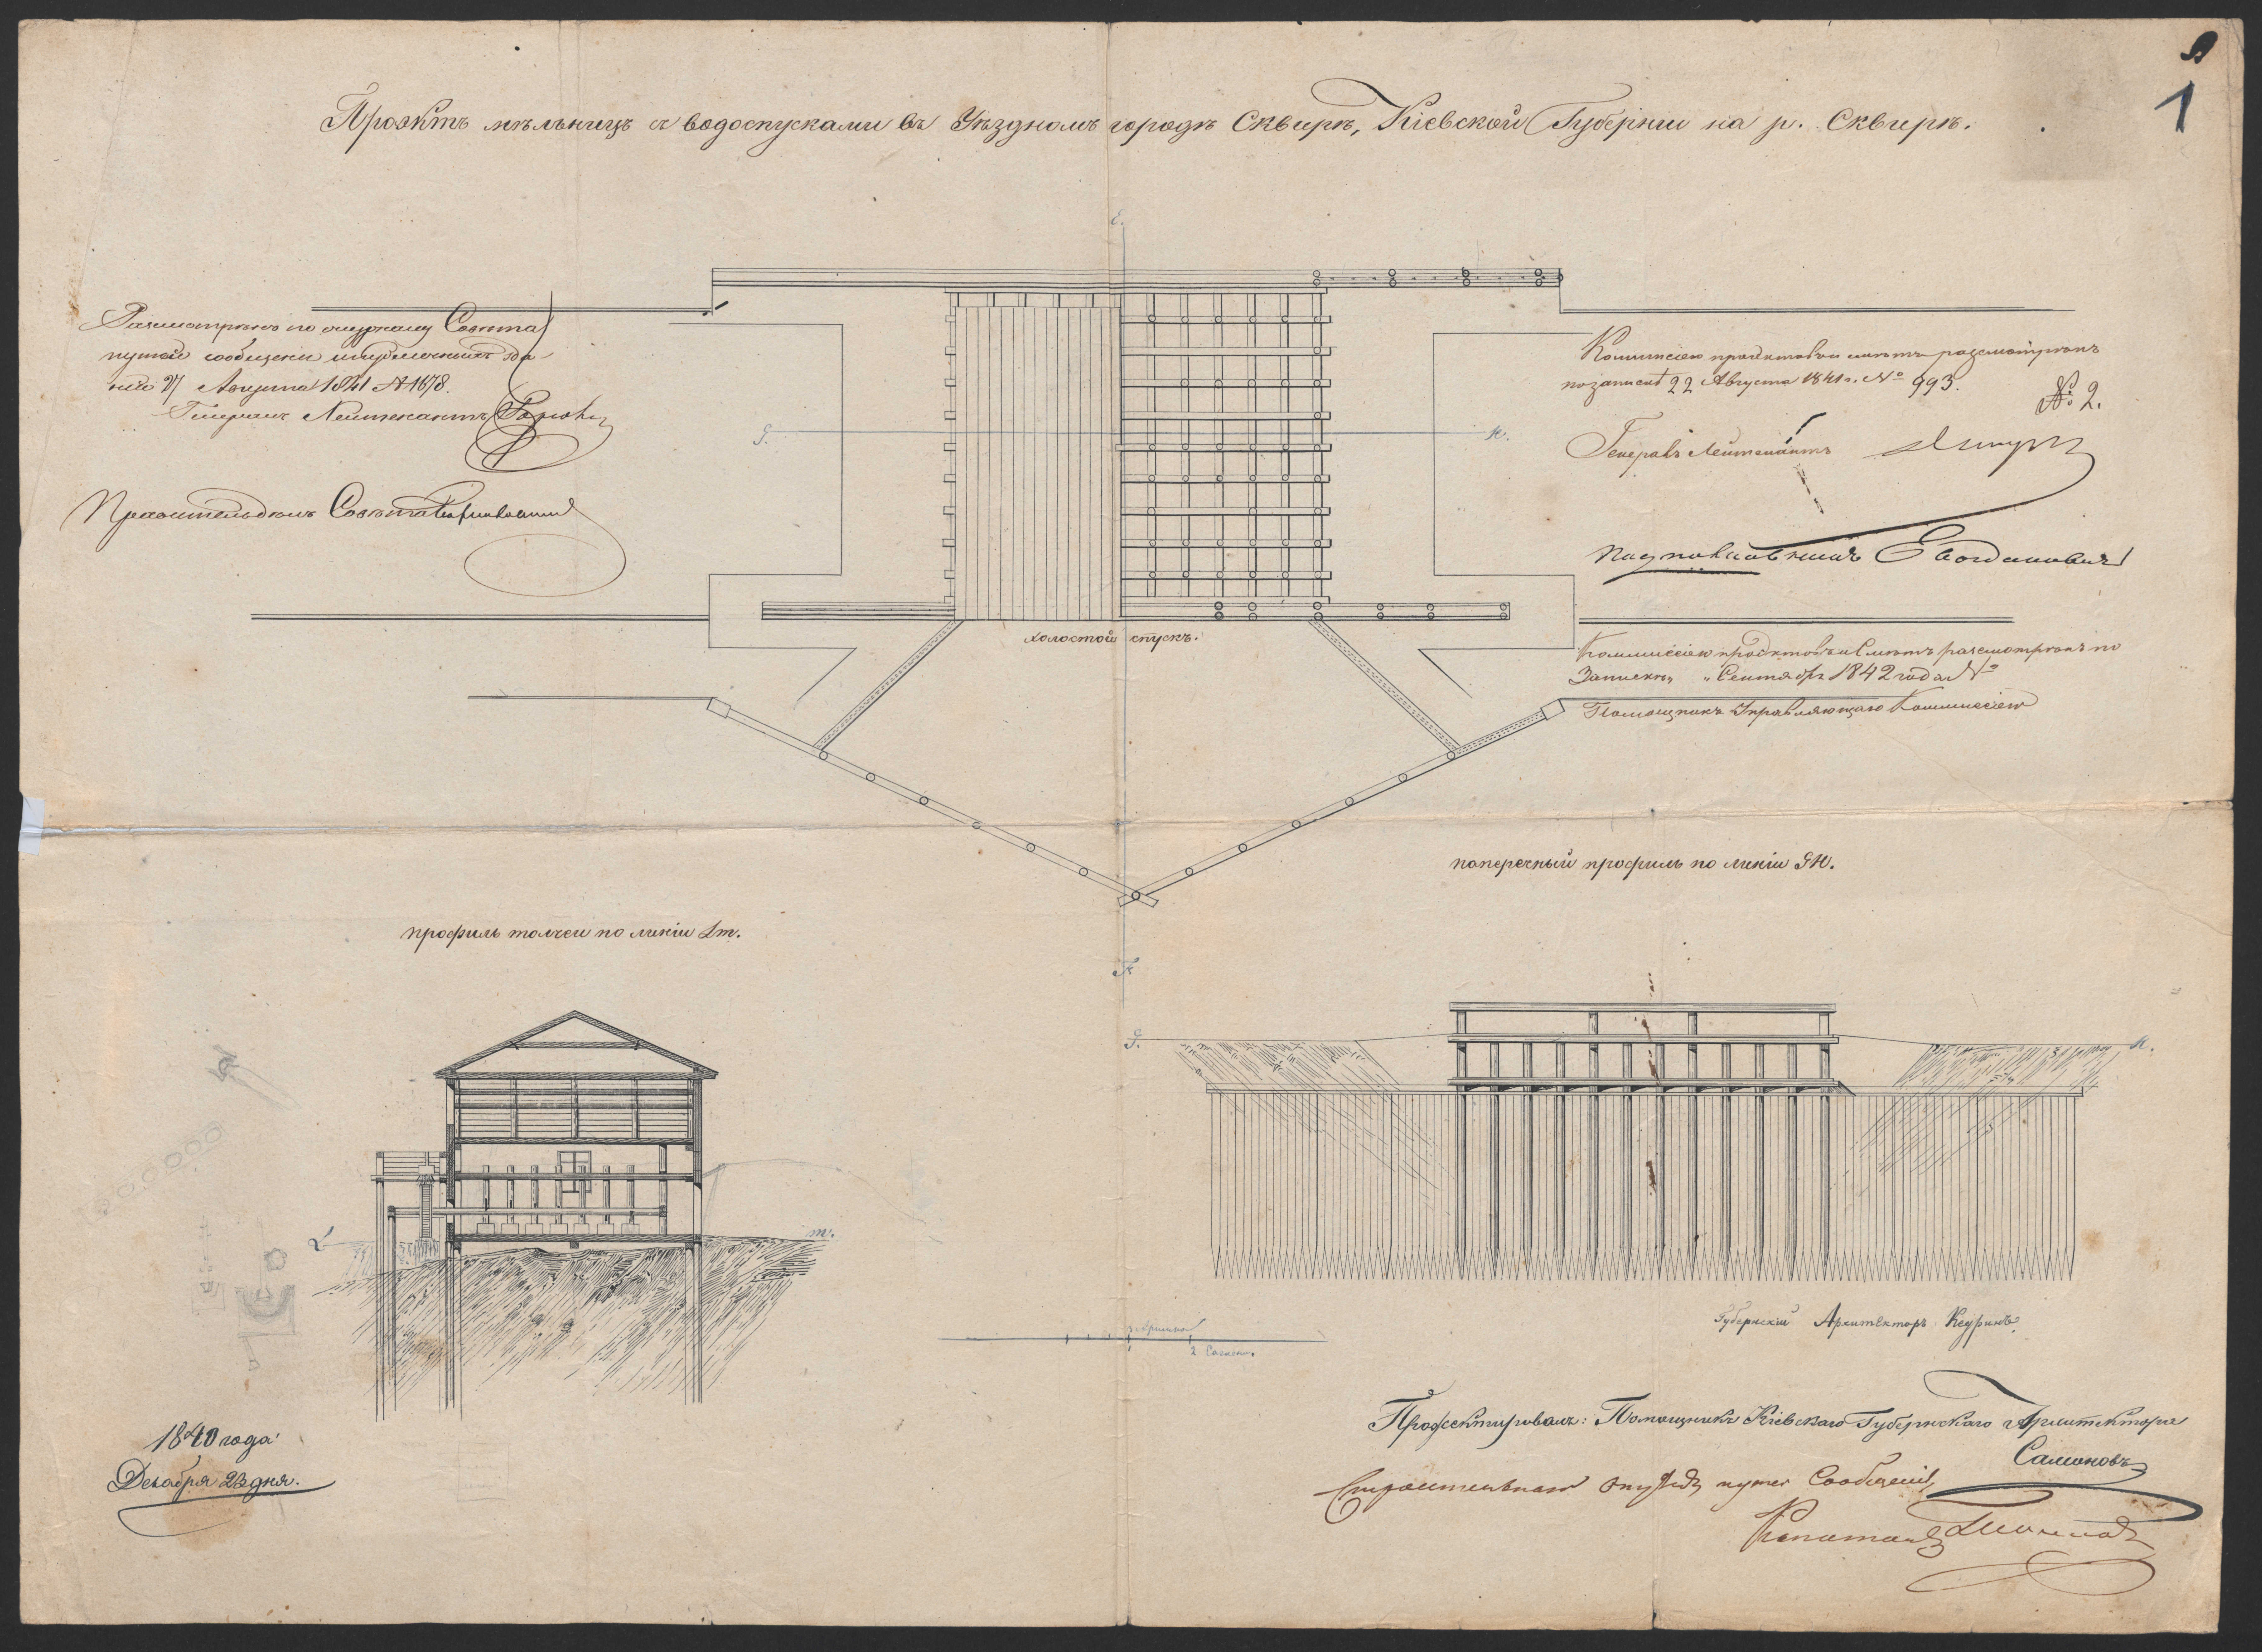 1
Проэктъ мѣльницъ съ водоспусками въ Уѣздномъ городѣ Сквирѣ, Кіевской Губерніи на р. Сквирѣ.
Е.
Разсмотрѣнъ по Совѣта
путей сообщенія
27 Августа 1841 № 1678.
Генералъ Лейтенантъ
Совѣта
Коммисіею проэктовъ и смѣтъ разсмотрѣнъ
по запискѣ 22 Августа 1841 г. № 993.
№ 2.
Генералъ Лейтенантъ
Подполковникъ Богдановичъ
G.
H.
холостой спускъ.
Коммисіею проэктовъ и Смѣтъ разсмотрѣнъ по
Запискѣ „ „ Сентября 1842 года №
Помощникъ Управляющаго Коммисіею
поперечный профиль по линіи GH.
профиль толчеи по линіи Lm.
F.
G.
H.
L
m.
3 Аршина
1
2 Сажени.
Губернскій Архитекторъ
1840 года
Декабря 23 дня.
Проэктировалъ: Помощникъ Кіевскаго Губернскаго Архитектора
Самоновъ
путей Сообщенія,
Капитанъ